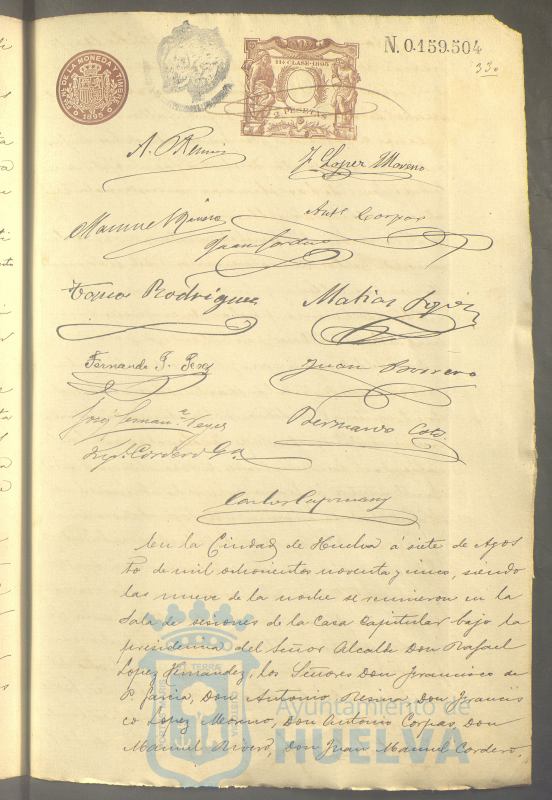 N. 0.159.504
33
DE LA MONEDA Y TIMBRE
1895
11ª CLASE 1895
2 PESETAS
F Lopez Moreno
Manuel Rivero
Antº Corpas
Juan Cordero
Tomas Rodriguez
Matias Lopez
Fernando P. Perez
Juan Borrero
José Reyes
Bernardo
Cordero
Carlos
En la Ciudad de Huelva á siete de Agos
to de mil ochocientos noventa y cinco, siendo
las nueve de la noche se reunieron en la
Sala de sesiones de la Casa Capitular bajo la
presidencia del Señor Alcalde Don Rafael
Lopez Hernandez, los Señores Don Francisco de
P. Garcia, Don Antonio Resina, Don Francis
co Lopez Moreno, Don Antonio Corpas, Don
Manuel Rivero, Don Juan Manuel Cordero,
Ayuntamiento de
HUELVA